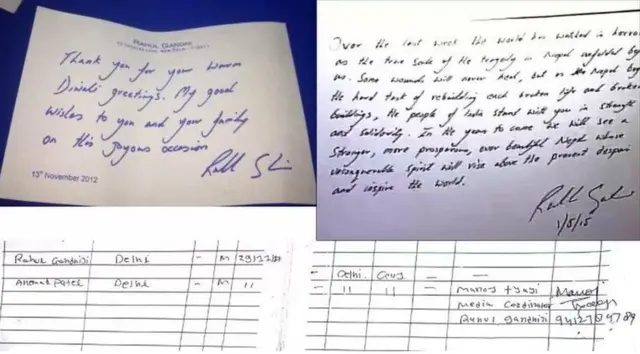 RAHUL GANDHI
Thank you for your warm
Diwali greetings. My good
wishes to you and your family
on this joyous occasion
13th November 2012
Over the last week the world has watched in horror
as the true scale of the tragedy in Nepal unfolded
us. Some wounds will never heal, but as Nepal beg
the hard task of rebuilding each broken life and broken
buildings, the people of India stand with you in strength
and solidarity. In the years to come we will see a
stronger, more prosperous, ever beautiful Nepal whose
vanquerable spirit will rise above the present despair
and inspire the world.
1/5/15
Rahul Gandhiji Delhi - M
Ahemad Patel Delhi - M 11
Delhi Cong - -
- 11 11 - Manoj Tyagi Manoj
Media Cordinator Tyagi
Rahul Gandhiji